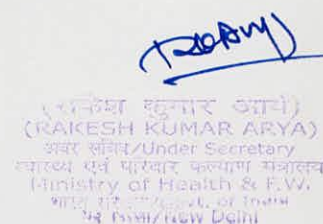 (राकेश कुमार आर्य)
(RAKESH KUMAR ARYA)
अवर सचिव/Under Secretary
स्वास्थ्य एवं परिवार कल्याण मंत्रालय
Ministry of Health & F.W.
Govt. of India
New Delhi